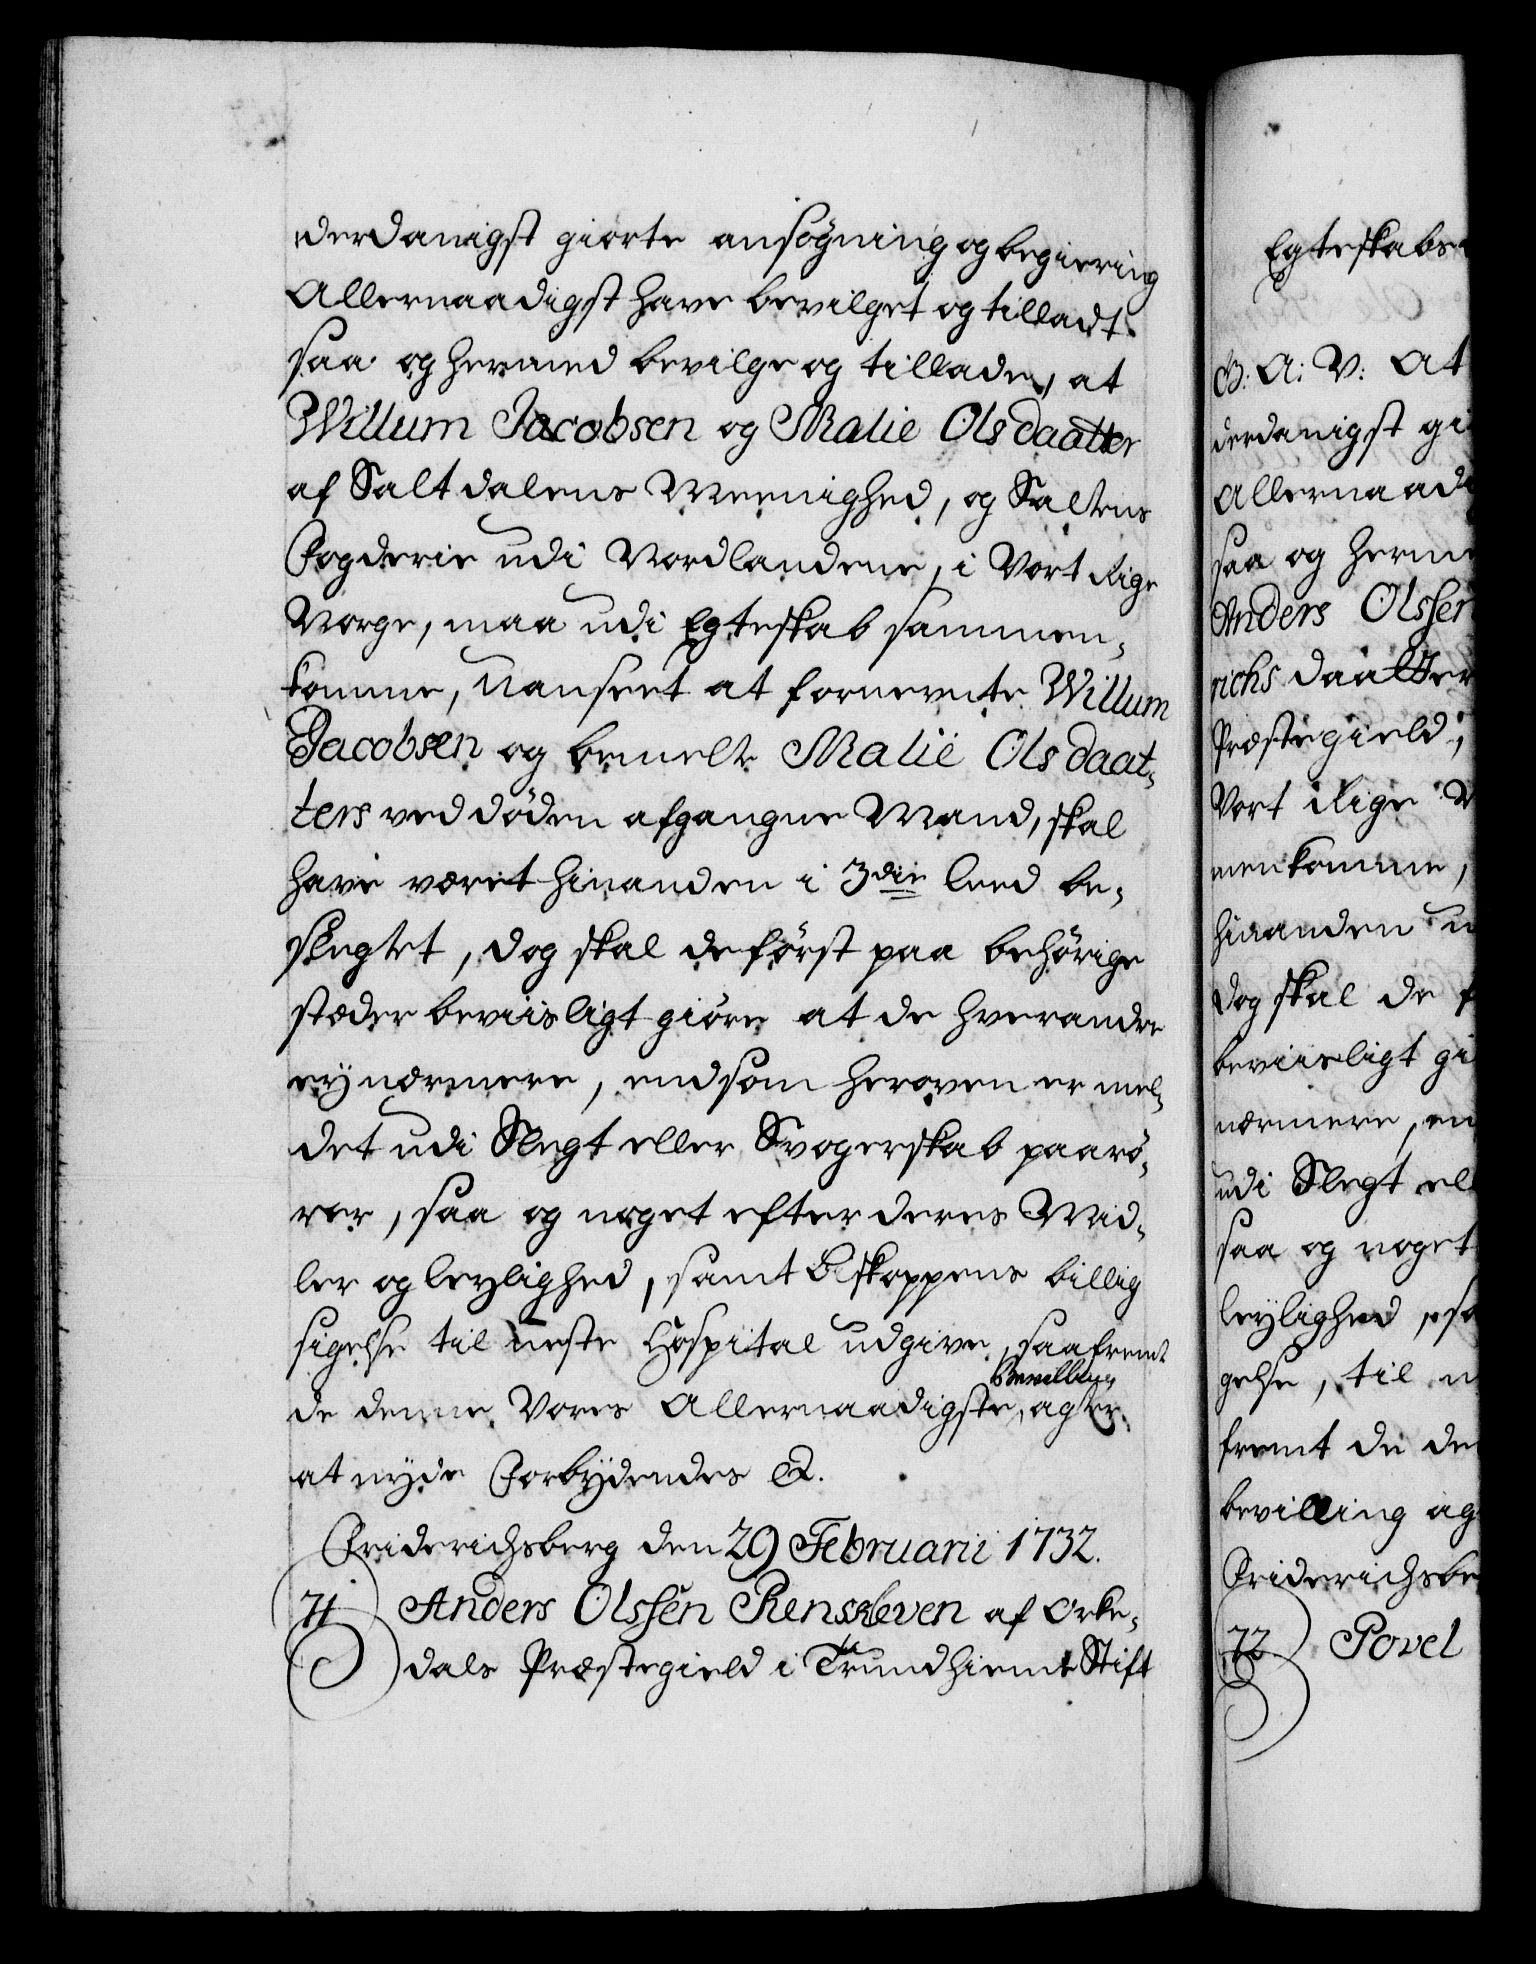 derdanigst giorte ansøgning og begiering
Allernaadigst have bevilget og tilladt
saa og hermed bevilge og tillade, at
Willum Jacobsen og Malie Olsdaatter
af Saltdalens Meenighed, og Saltens
Fogderie udi Nordlandene, i Vort Rige
Norge, maa udi Egteskab sammen-
komme, Uanseet at fornevnte Willum
Jacobsen og bemelte Malie Olsdaat-
ters ved døden afgangne Mand, skal
have været hinanden i 3die leed be-
slegtet, dog skal de først paa behørige
stæder beviisligt giøre at de hverandre
ey nærmere, end som heroven er mel-
det udi Slegt eller Svogerskab paarø-
rer, saa og noget efter deres Mid-
ler og leylighed, samt Biskoppens billig
sigelse til neste Hospital udgive, saafremt
de denne Vores Allernaadigste Bevilling agter
at nyde Forbydendes &.
Friderichsberg den 29 Februarii 1732.
71 Anders Olssen Renskleven af Orke-
dals Præstegield i Trundhiems Stift
Egteskabs
G: A: V: At
derdanigst gi
Allernaadi
saa og herme
Anders Olssen
richs daatter
Præstegield,
Vort Rige N
men komme,
hinanden u
dog skal de f
beviisligt gi
nærmere, en
udi Slegt ell
saa og noget
leylighed, sa
gelse, til n
fremt de de
bevilling ag
Friderichsbe
72 Povel